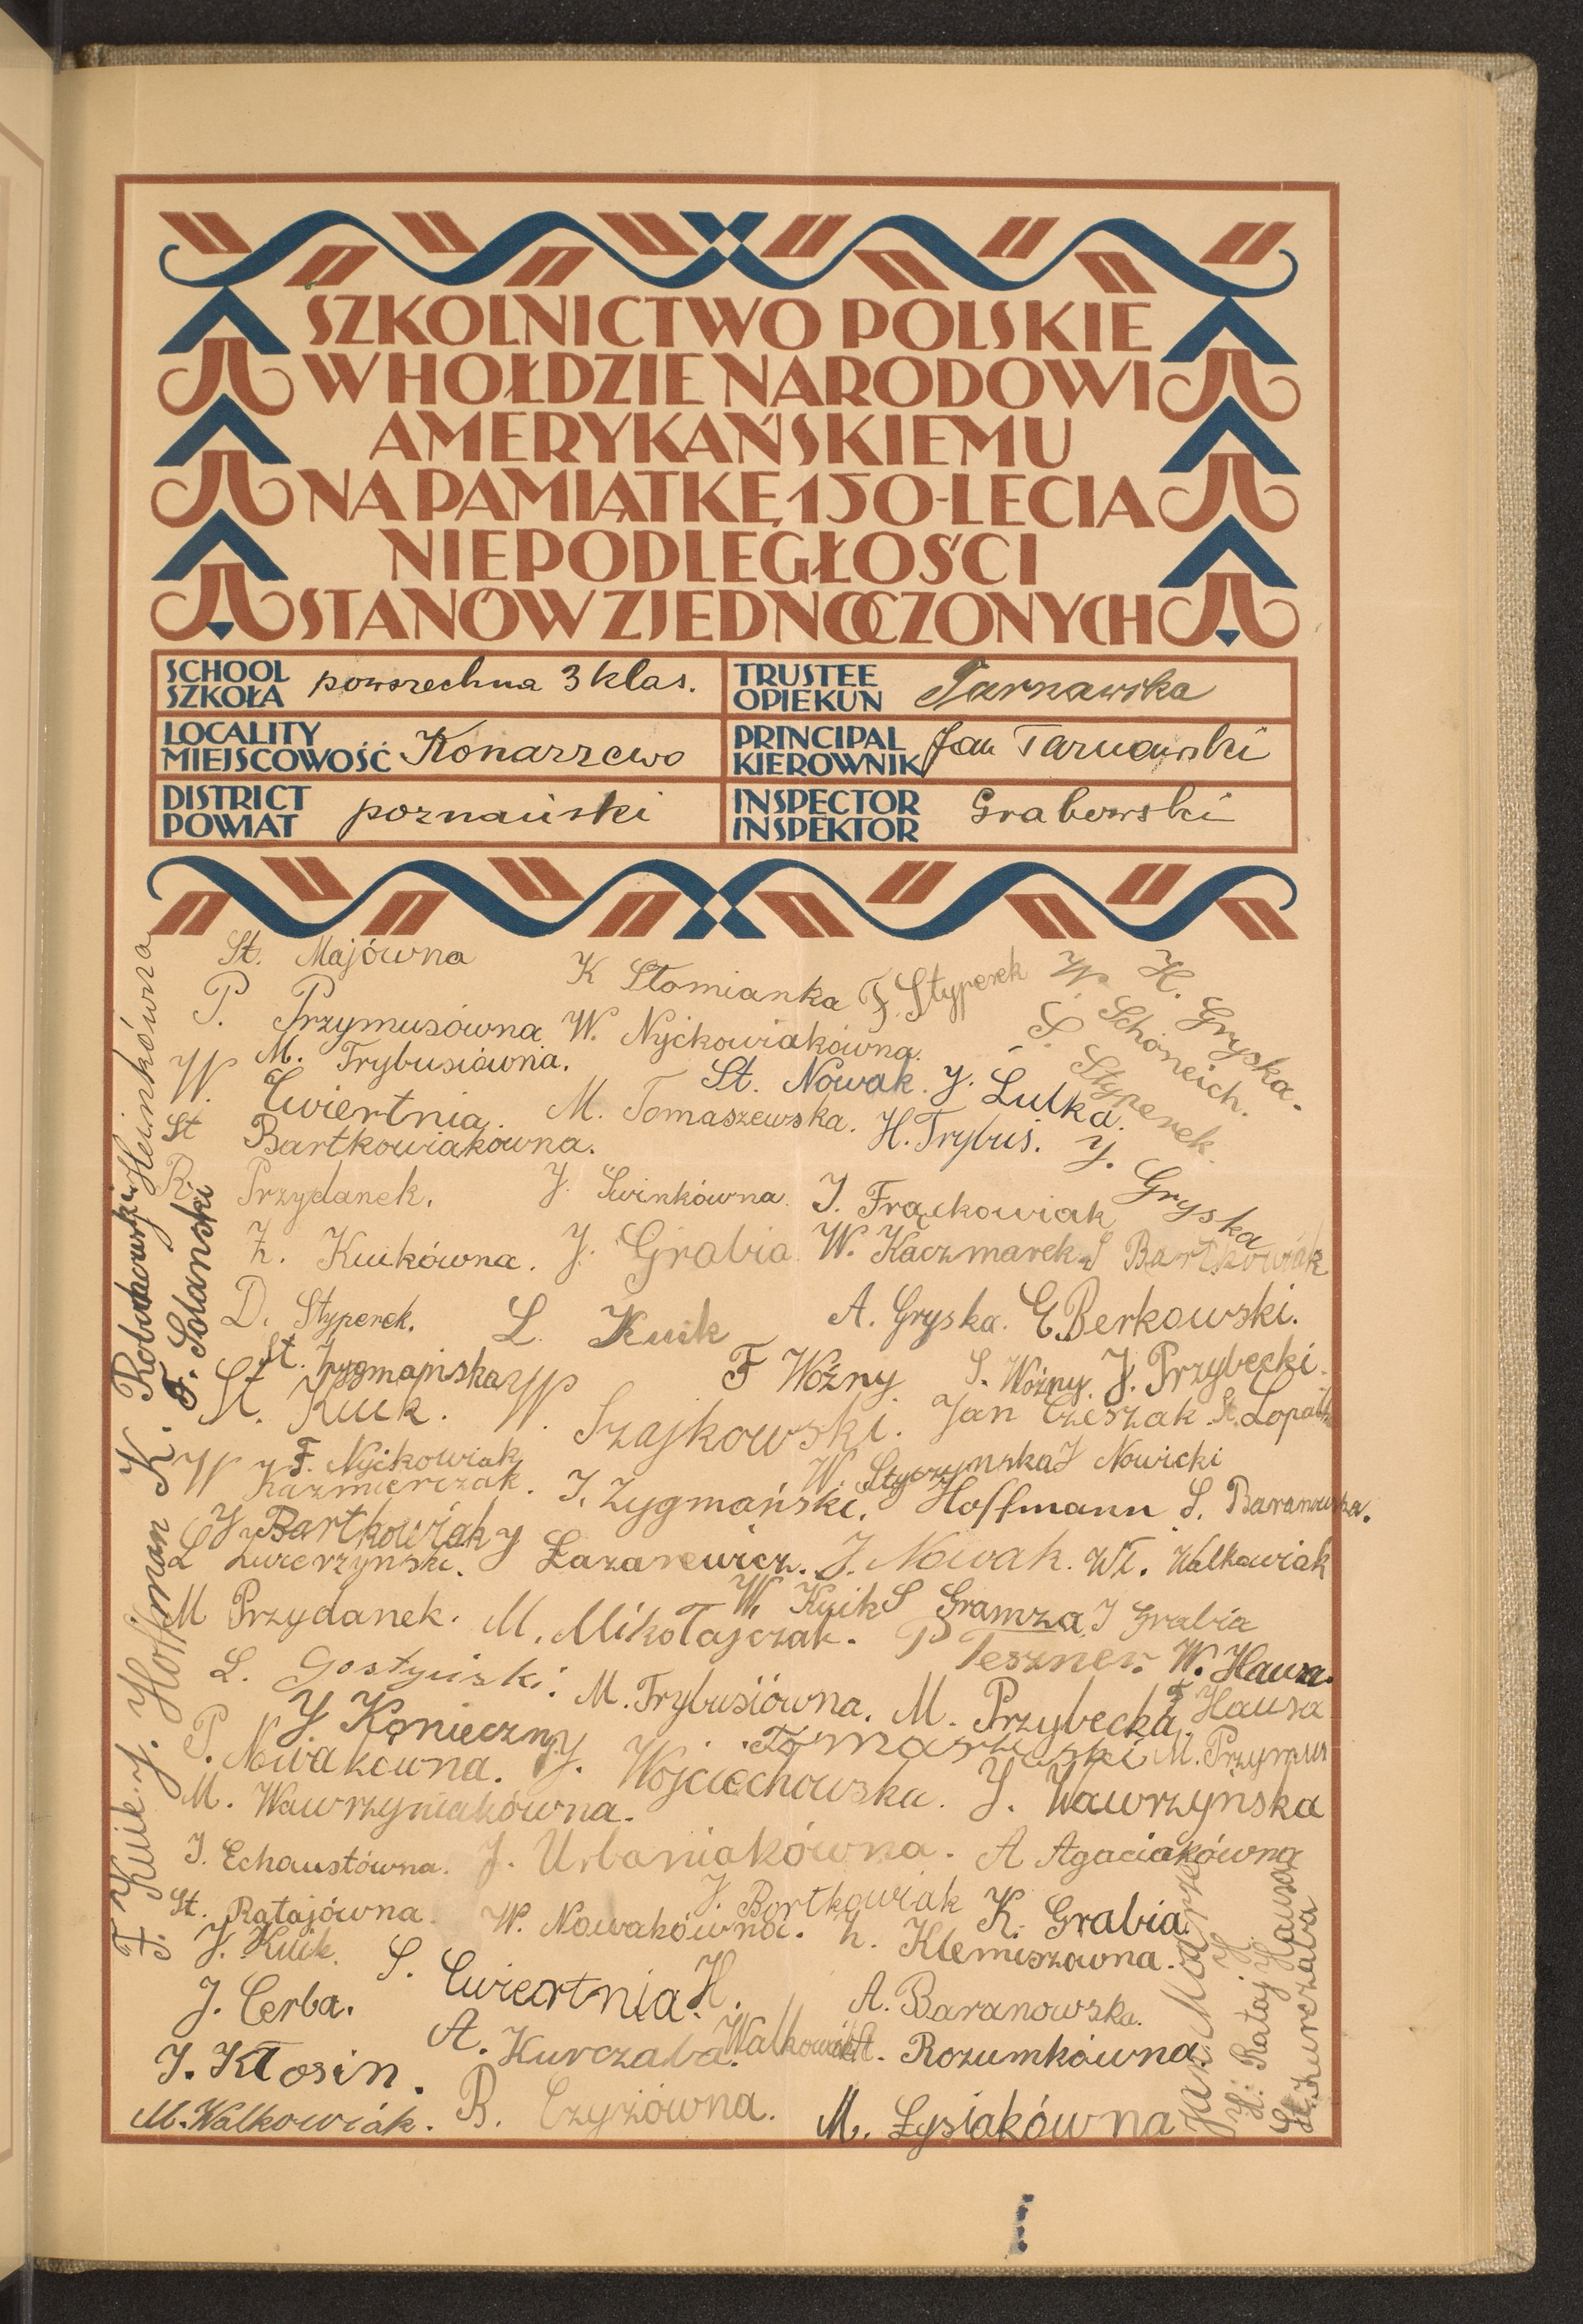 SZKOLNICTWO POLSKIE
W HOŁDZIE NARODOWI
AMERYKAŃSKIEMU
NA PAMIĄTKĘ 150-LECIA
NIEPODLEGŁOŚCI
STANÓW ZJEDNOCZONYCH
SCHOOL SZKOŁA powszechna 3 klas.
TRUSTEE OPIEKUN Tarnawska
LOCALITY MIEJSCOWOŚĆ Konarzewo
PRINCIPAL KIEROWNIK Jan Tarnawski
DISTRICT POWIAT poznański
INSPECTOR INSPEKTOR Grabowski
St. Majówna
K Słomianka F. Styperek
W. Schöneich.
H. Gryska.
P. Przymusówna W. Nyćkowiakówna.
S. Styperek.
M. Trybusiówna.
St. Nowak. J. Lulka.
W. Ćwiertnia. M. Tomaszewska. H. Trybuś.
J. Gryska
St Bartkowiakówna.
R. Przydanek. J. Świnkówna. I. Frąckowiak
Z. Kuikówna. J. Grabia W. Kaczmarek S Bartkowiak
D. Styperek. L. Kuik A. Gryska. E. Berkowski.
St. Zygmańska
F Woźny S. Woźny. J. Przybecki.
St. Kuik. W. Szajkowski. Jan Cieszak.
F. Nyćkowiak
W. Styczyńska J Nowicki
W Kaźmierczak. I. Zygmański. J Hoffmann S. Baranowska.
J Bartkowiak
L Zwierzyński. J Łazarewicz. J. Nowak. Wł. Walkowiak
W. Kuik S Gramza J Grabia
M Przydanek. M. Mikołajczak. P Teszner. W. Hausa.
L. Gostyński. M. Trybusiówna. M. Przybecka. F Hausa
J Konieczny
M. Przymus
P. Nowakówna. J. Wojciechowska. J. Wawrzyńska
M. Wawrzyniakówna.
J. Echaustówna. J. Urbaniakówna. A Agaciakówna
J. Bartkowiak K. Grabia.
St. Ratajówna W. Nowakówna. h. Klemiszówna.
J. Kuik. S. Ćwiertnia.
J. Cerba. A. Baranowska.
A. Kurczaba. H. Walkowiak
A. Rozumkówna.
J. Kłosin.
M. Walkowiák. B. Czyżówna. M. Łysiakówna
Heinkówna
F. Solarski
K.
J. Hoffman
F. Kuik
H. Rataj
H. Hausa
St. Kurczaba